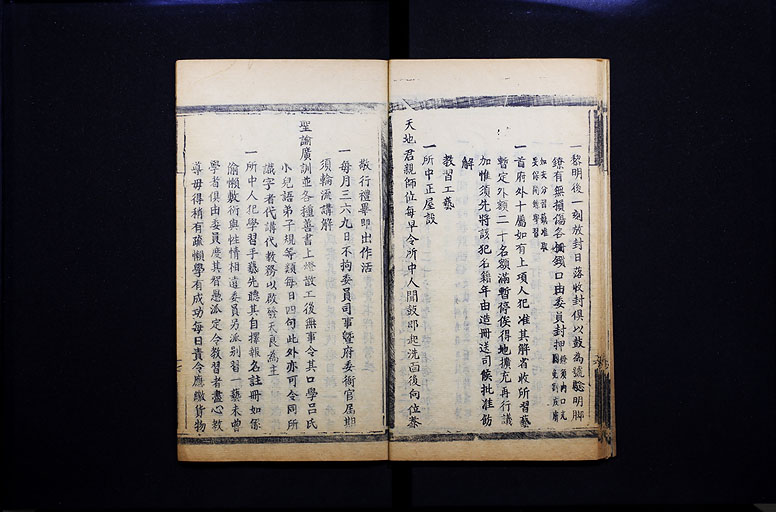 一黎明後一刻放封日落收封俱以鼓為號驗明脚
鐐有無損傷各攔鎖口由委員封押
一首府外十屬如有上項人犯准其解省收所習藝
暫定外額二十名額滿暫停俟得地擴充再行議
加惟須先將該犯名籍年由造冊送司候批准飭
解
教習工藝
一所中正屋設
天地君親師位每早令所中人聞鼓即起洗面後向位恭
敬行禮畢即出作活
一每月三六九日不拘委員司事暨府委衛官屆期
須輪流講解
聖諭廣訓並各種善書上燈散工後無事令其口學呂氏
小兒語弟子規等類每日四句此外亦可令同所
識字者代講代教務以啟發天良為主
一所中人犯學習手藝先聽其自擇報名註冊如係
偷懶數術與性情相違委員另派别習一藝未曾
學者俱由委員度其智愚派定令教習者盡心教
導毋得稍有疏懶學有成功每日責令應繳貨物